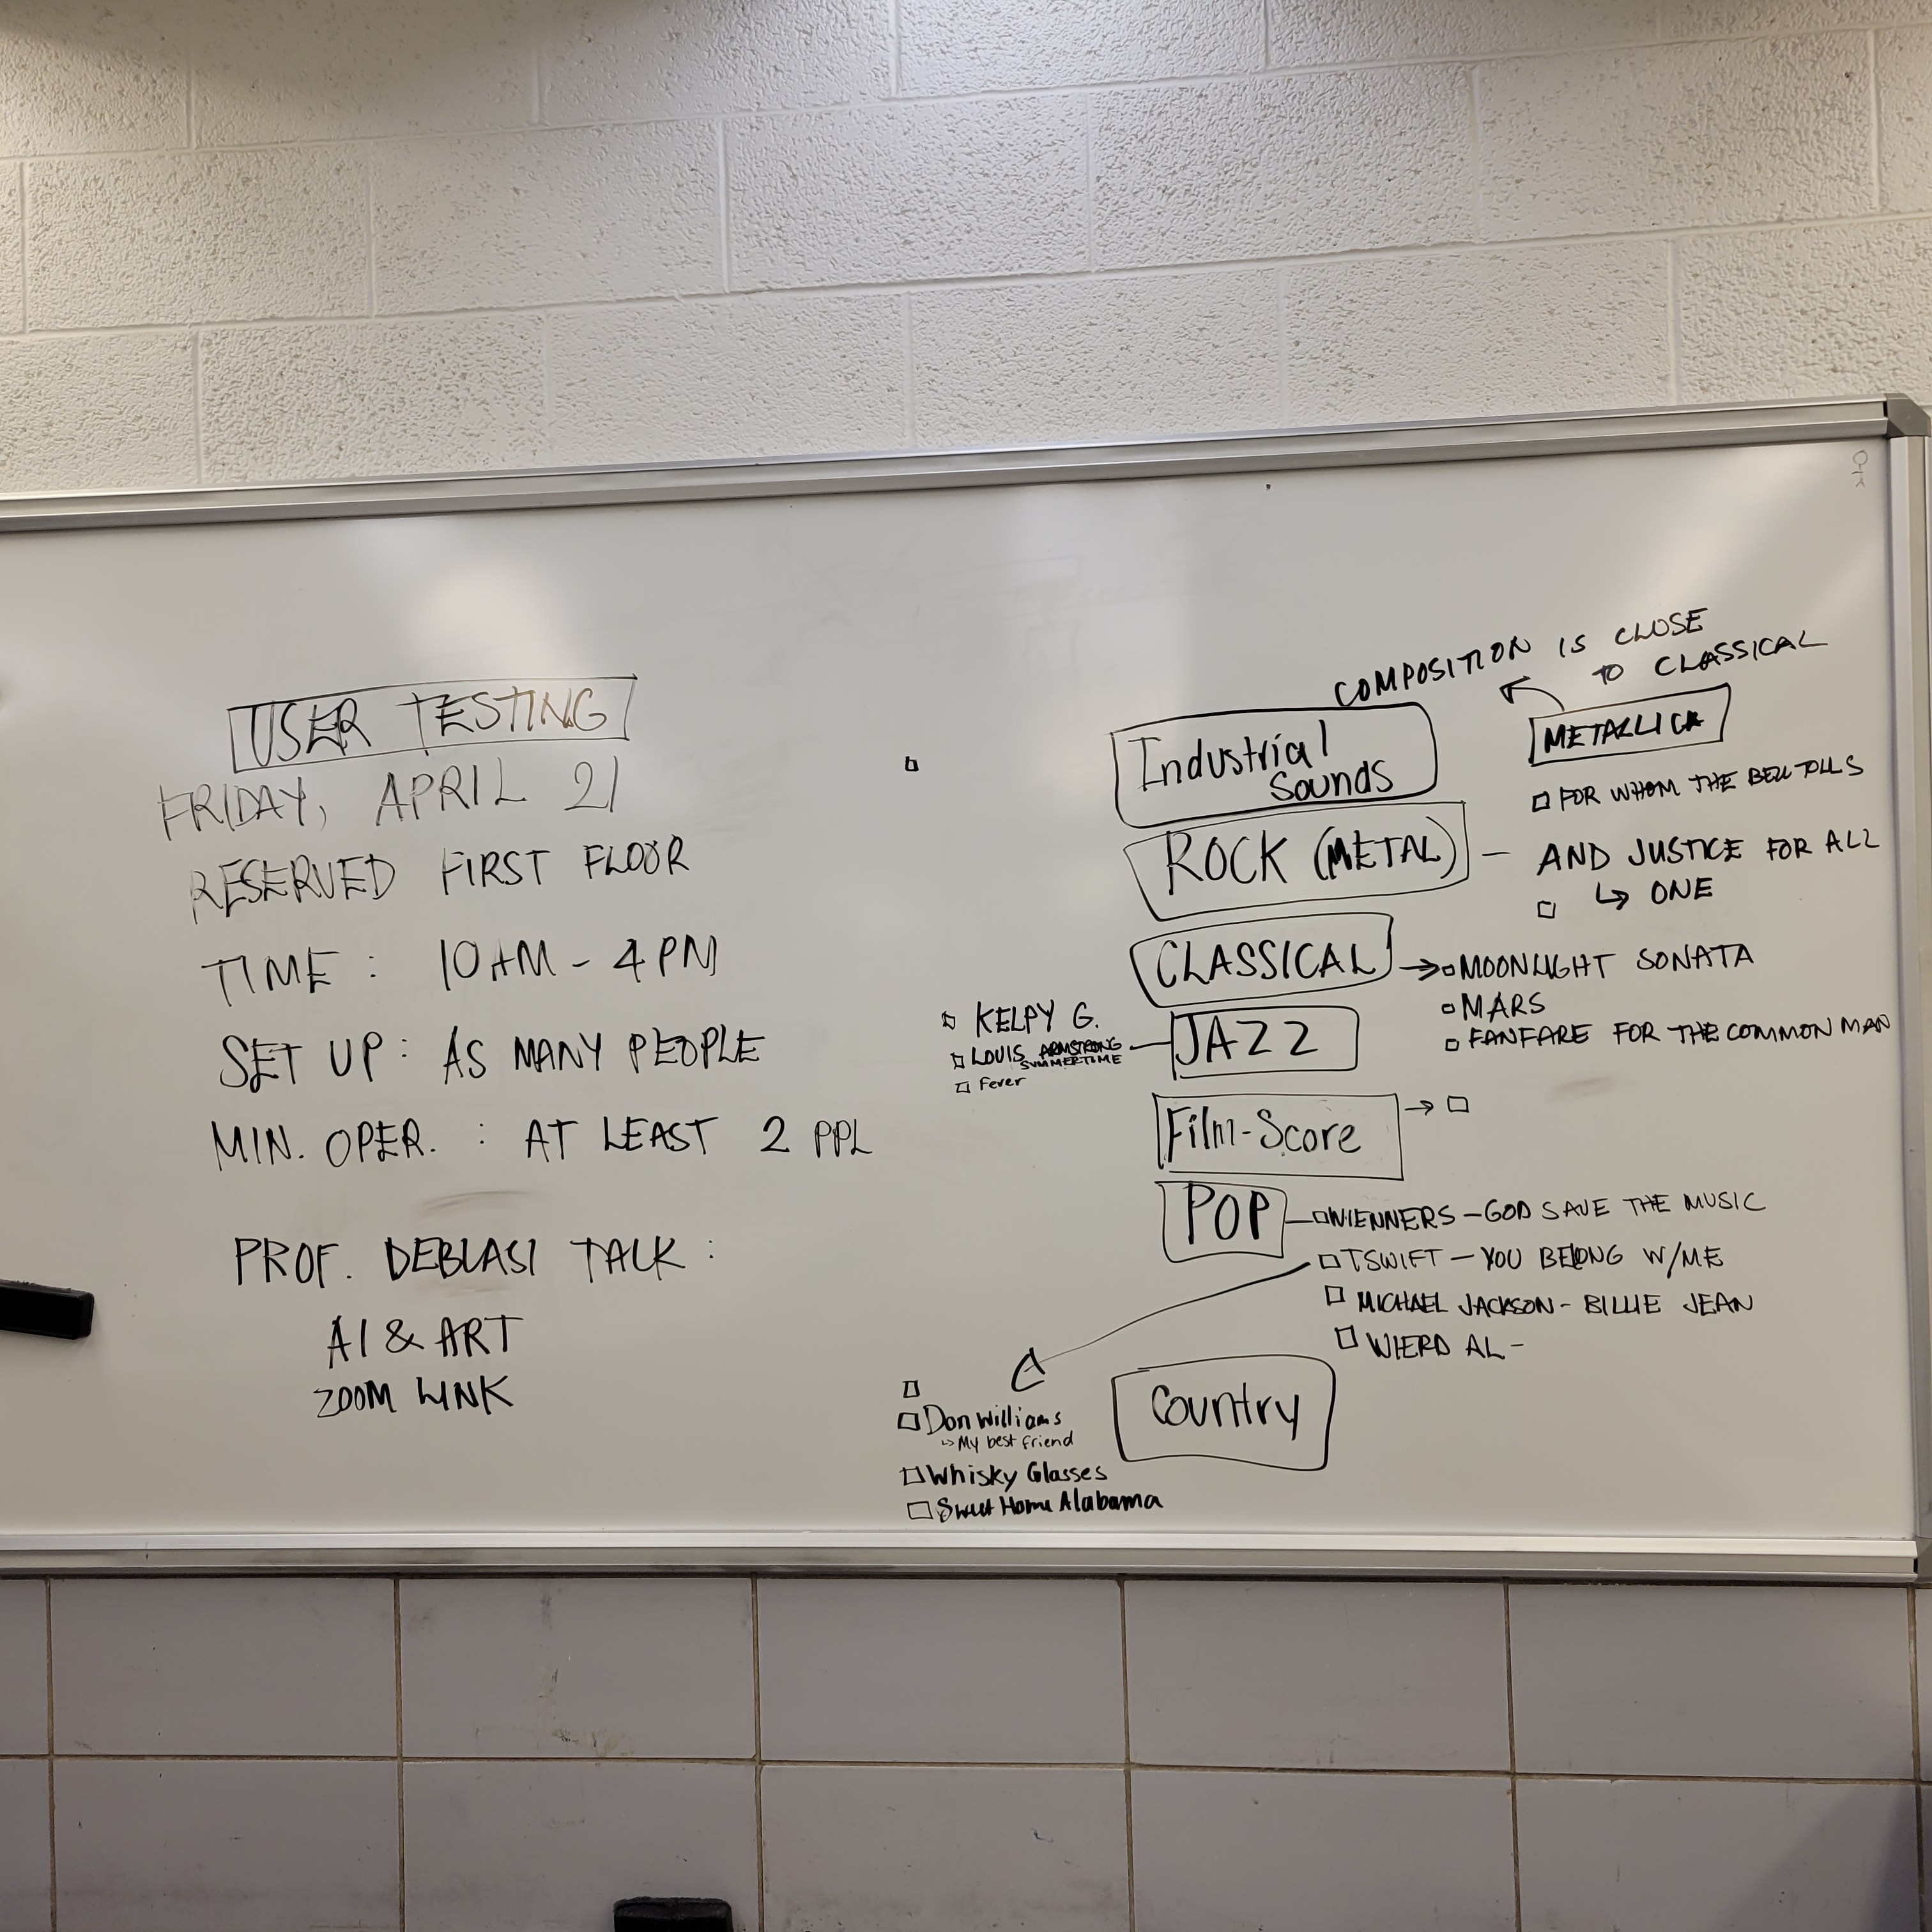 USER TESTING
FRIDAY, APRIL 21
RESERVED FIRST FLOOR
TIME : 10AM - 4PM
SET UP : AS MANY PEOPLE
MIN. OPER. : AT LEAST 2 PPL
PROF. DEBLASI TALK :
AI & ART
ZOOM LINK
COMPOSITION IS CLOSE
TO CLASSICAL
METALLICA
FOR WHOM THE BELL TOLLS
Industrial
Sounds
ROCK (METAL) - AND JUSTICE FOR ALL
↳ ONE
CLASSICAL → MOONLIGHT SONATA
MARS
FANFARE FOR THE COMMON MAN
JAZZ
KELPY G.
LOUIS ARMSTRONG
SUMMERTIME
Fever
Film-Score →
POP - WIENNERS - GOD SAVE THE MUSIC
TSWIFT - YOU BELONG W/ME
MICHAEL JACKSON - BILLIE JEAN
WIERD AL -
Country
Don Williams
↳ My best friend
Whisky Glasses
Sweet Home Alabama